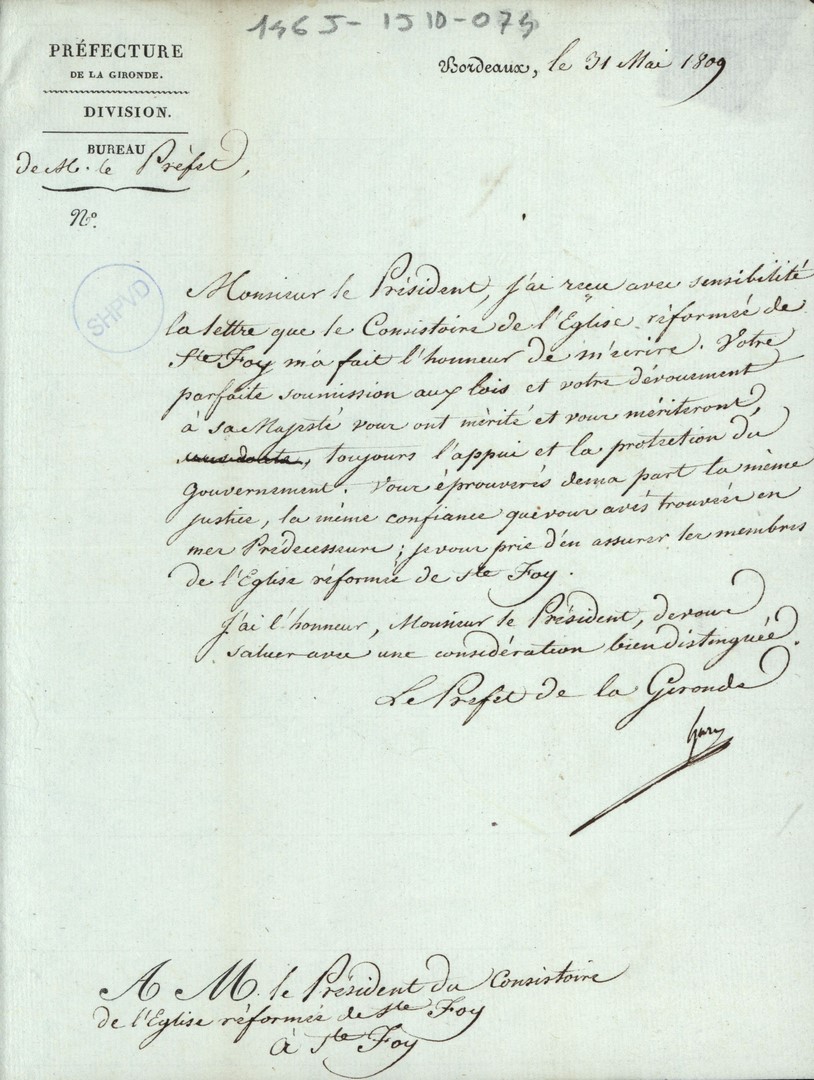 146J-15D-074
PRÉFECTURE
DE LA GIRONDE.
DIVISION.
BUREAU
de M. le Préfet,
N.º
Bordeaux, le 31 Mai 1809
SHPVD
Monsieur le Président, j'ai reçu avec sensibilité
la lettre que le Consistoire de l'Eglise réformée de
Ste Foy m'a fait l'honneur de m'écrire. Votre
parfaite soumission aux lois et votre dévouement
à sa Majesté vous ont mérité et vous mériteront,
toujours l'appui et la protection du
Gouvernement. Vous éprouverés de ma part la même
justice, la même confiance que vous avés trouvée en
mes Prédecesseurs; je vous prie d'en assurer les membres
de l'Eglise réformée de Ste Foy.
J'ai l'honneur, Monsieur le Président, de vous
saluer avec une considération bien distinguée.
Le Prefet de la Gironde
A M. le Président du Consistoire
de l'Eglise réformée de Ste Foy
à Ste Foy